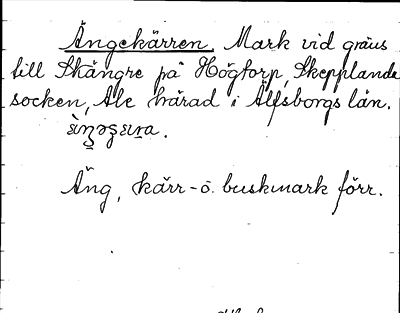 Ängekärren. Mark vid gräns
till Skångre på Högtorp, Skepplanda
socken, Ale härad i Älfsborgs län.
Äng, kärr- o. buskmark förr.